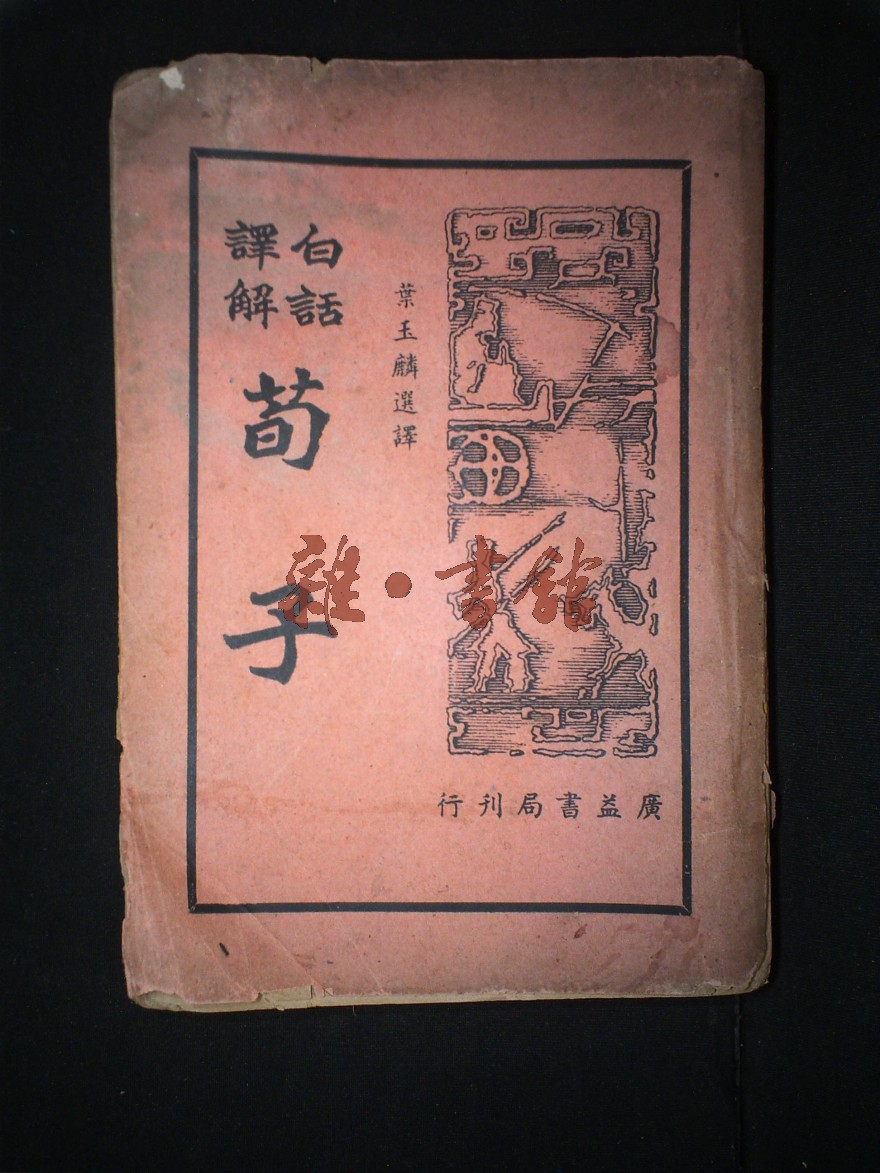 白話
譯解
荀子
葉玉麟選譯
廣益書局刊行
雜·書館